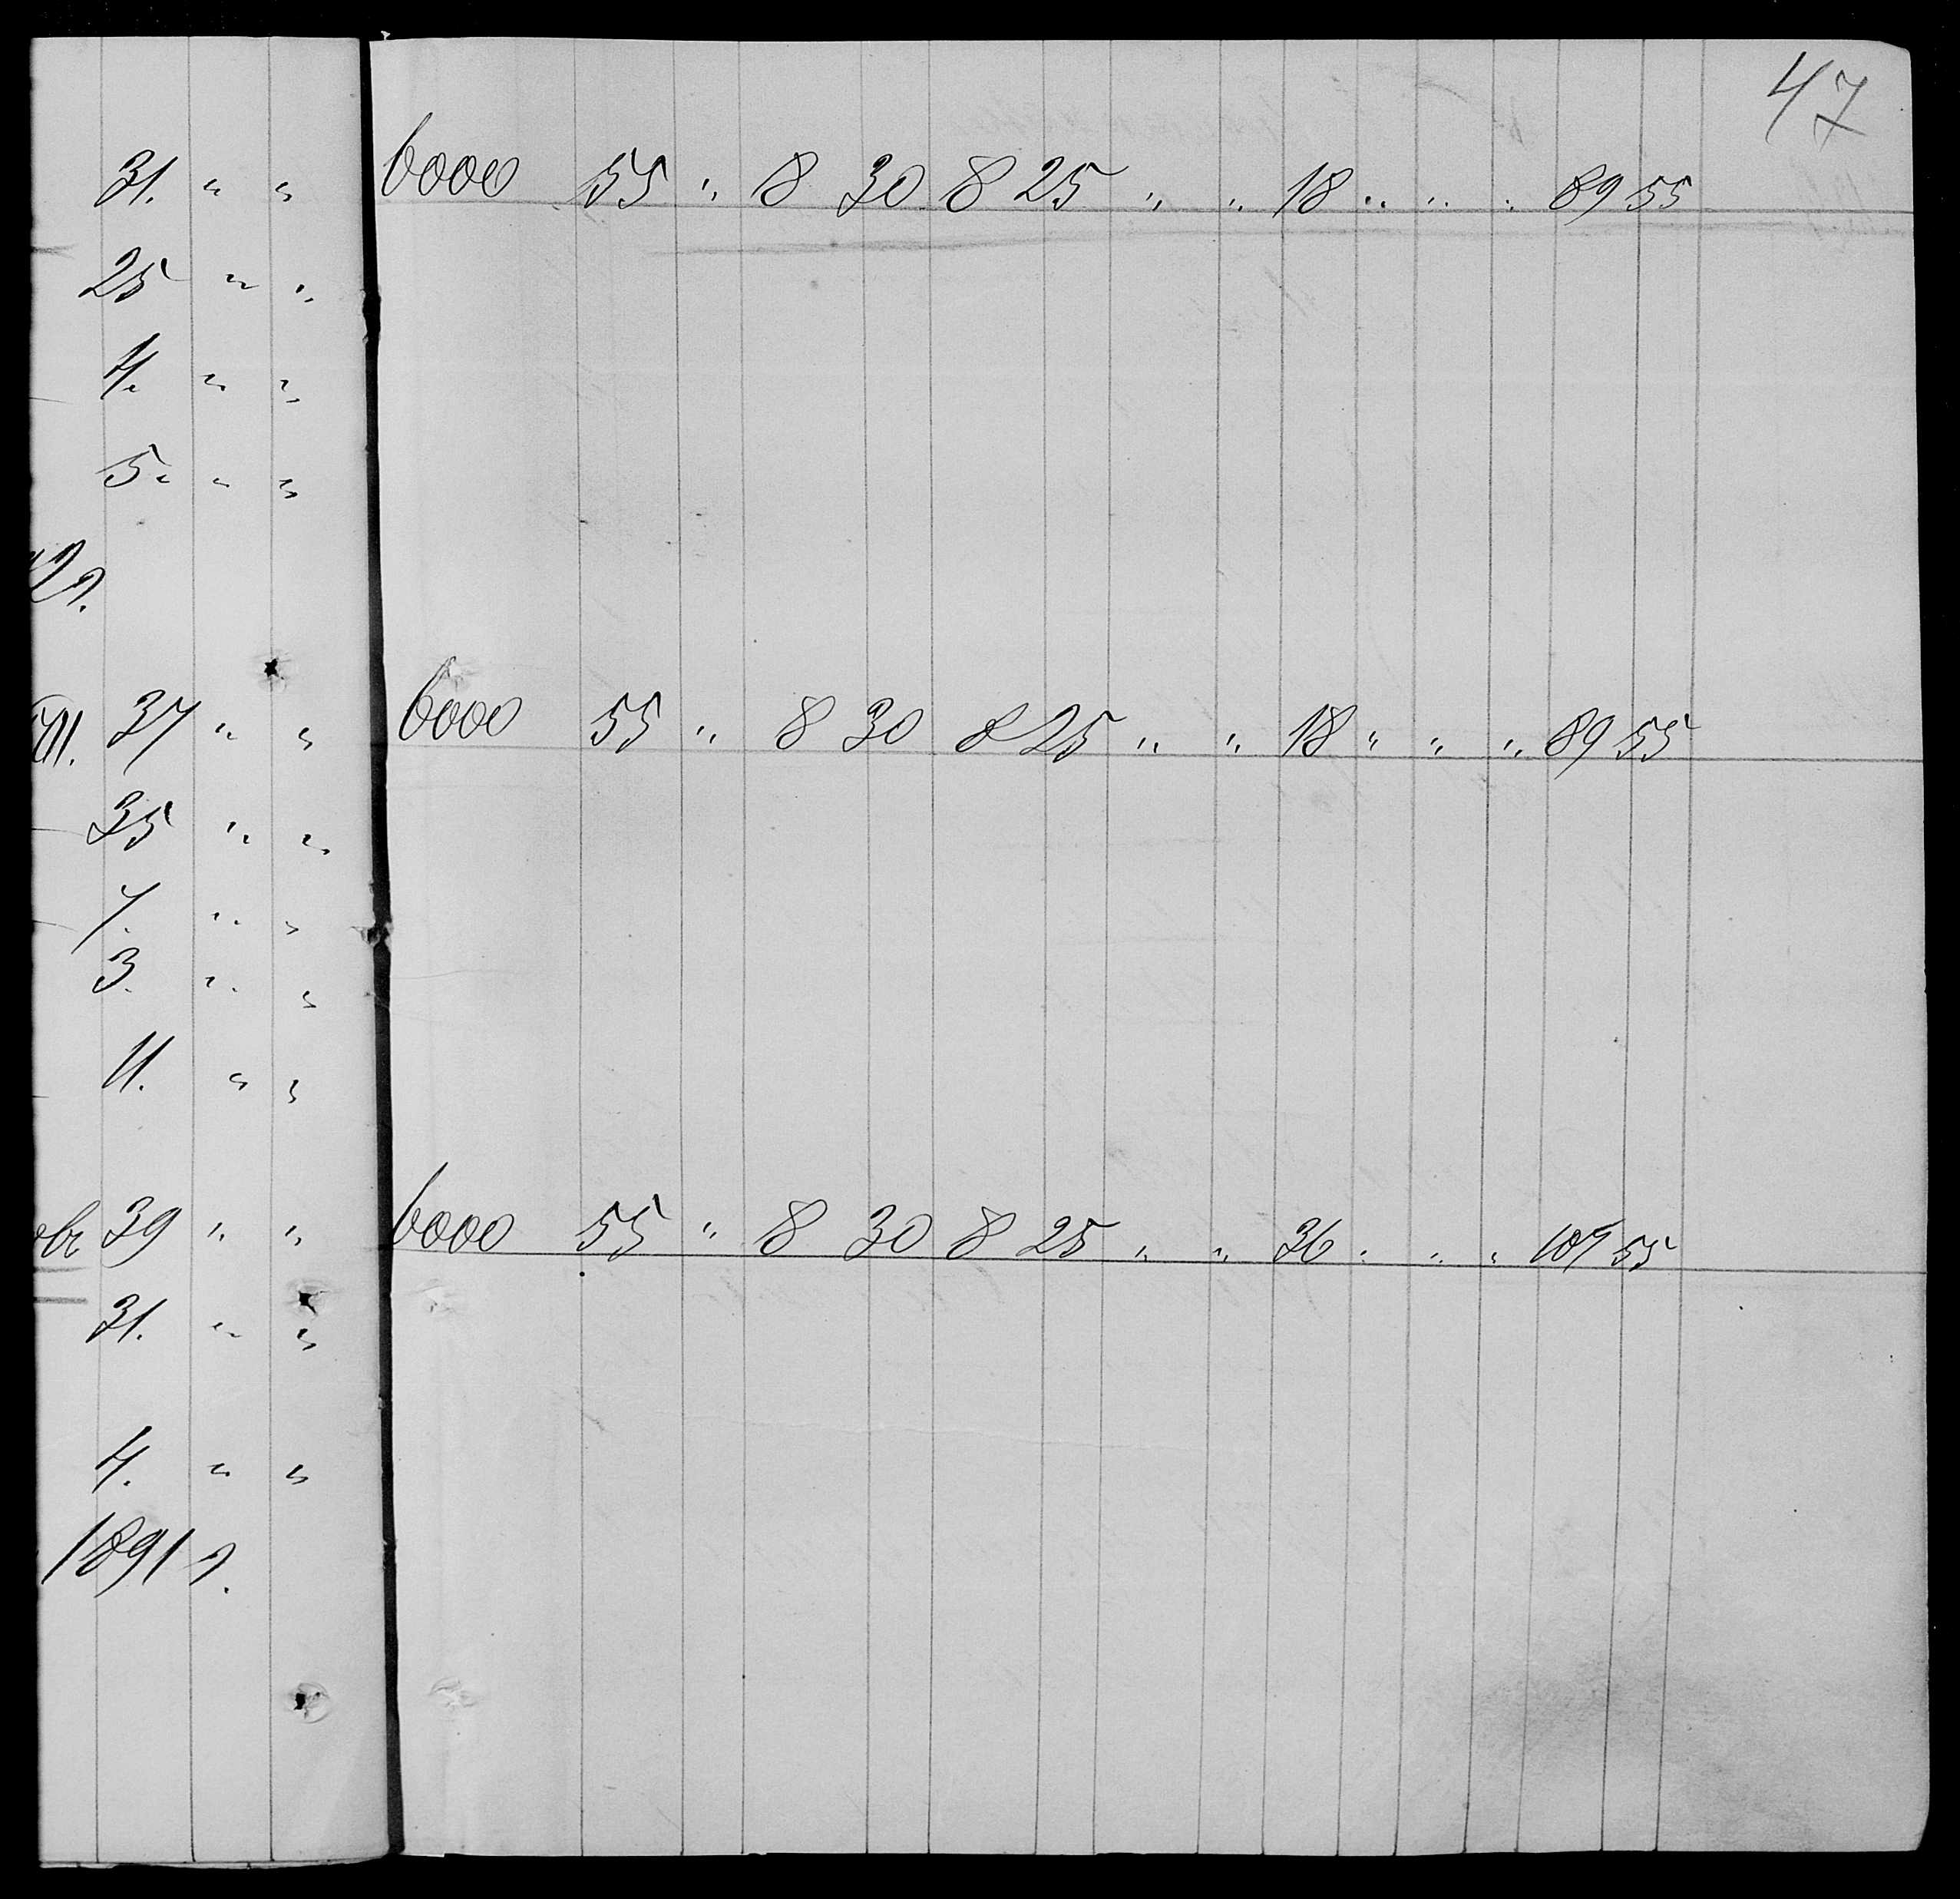 47
31. " " 6000 55 " 8 30 8 25 " " 18 " " " 89 55
25 " "
4. " "
5. " "
г.
37 " " 6000 55 " 8 30 8 25 " " 18 " " " 89 55
35 " "
7. " "
3. " "
11. " "
39 " " 6000 55 " 8 30 8 25 " " 36 " " " 107 55
31. " "
4. " "
1891 г.